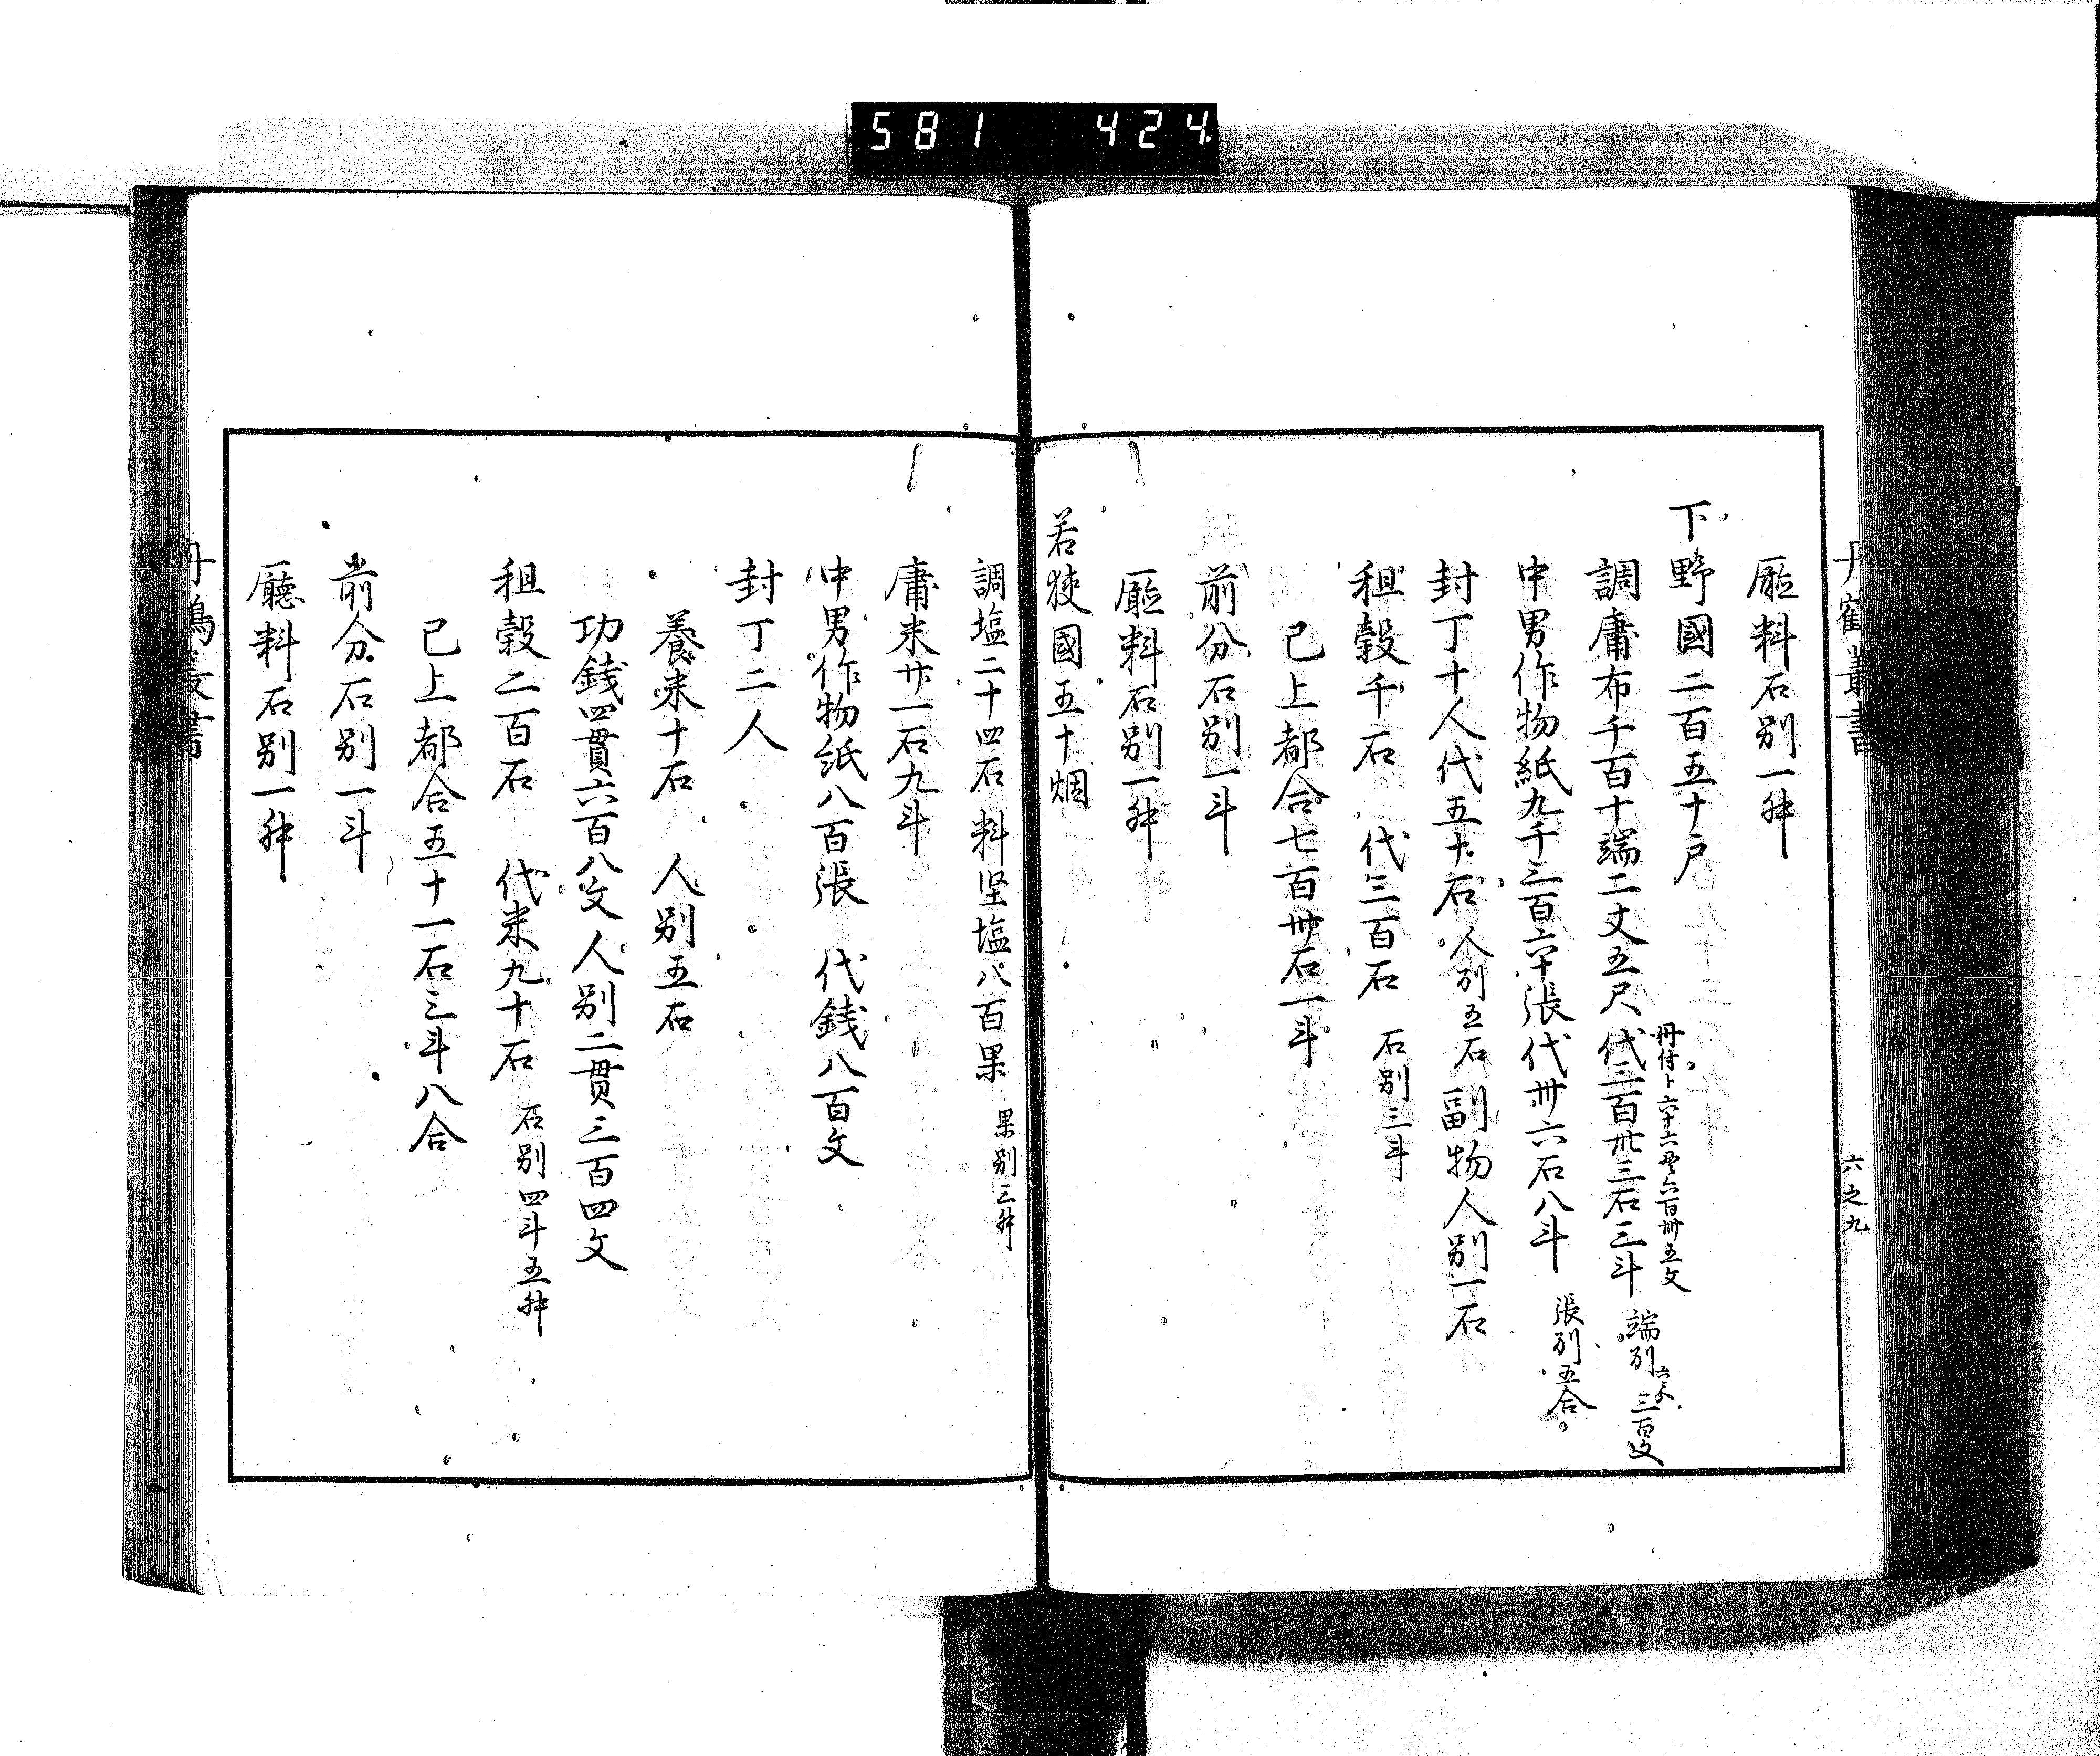 581 424
丹鶴叢書
六之九
廳料石別一舛
下野國二百五十戶
調庸布千百十端二丈五尺代三百卅三石三斗 端別 三百文
卌五文
中男作物紙九千三百六十張代卌六石八斗 張別五合
封丁十人代五十石 人別五石 副物人別一石
租穀千石 代三百石 石別三斗
已上都合七百卌石一斗
前分石別一斗
廳料石別一舛
若狹國五十烟
調塩二十四石 料堅塩八百果 果別三舛
庸米廿一石九斗
中男作物紙八百張 代錢八百文
封丁二人
養米十石 人別五石
功錢四貫六百八文 人別二貫三百四文
租穀二百石 代米九十石 石別四斗五舛
已上都合五十一石三斗八合
前分石別一斗
廳料石別一舛
丹鶴叢書